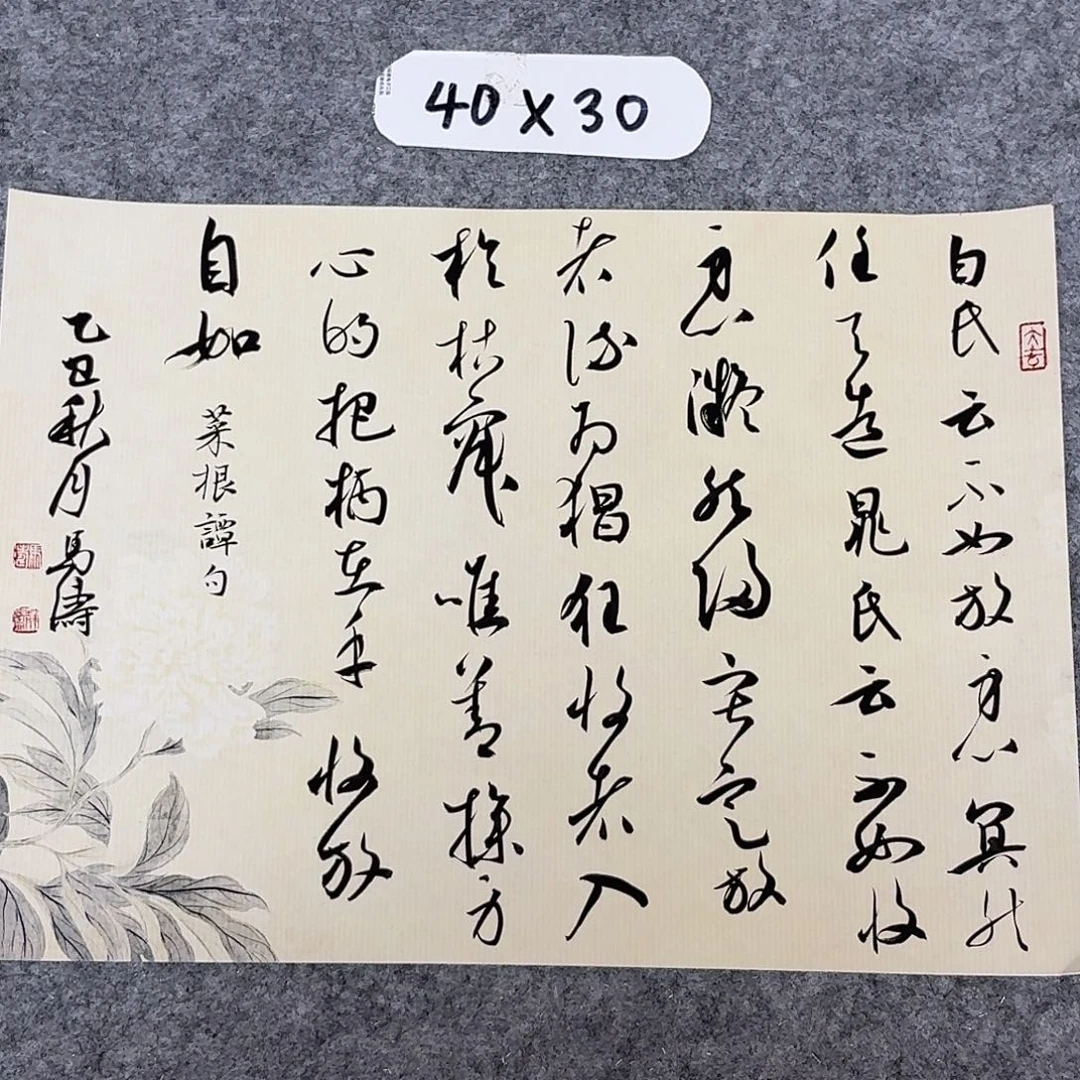 40X30
白氏云不如放身心冥然
任天造晁氏云不如收
身心凝然归寂定放
者流为猖狂收者入
於枯寂唯善操身
心的把柄在手收放
自如
菜根譚句
乙丑秋月馬濤